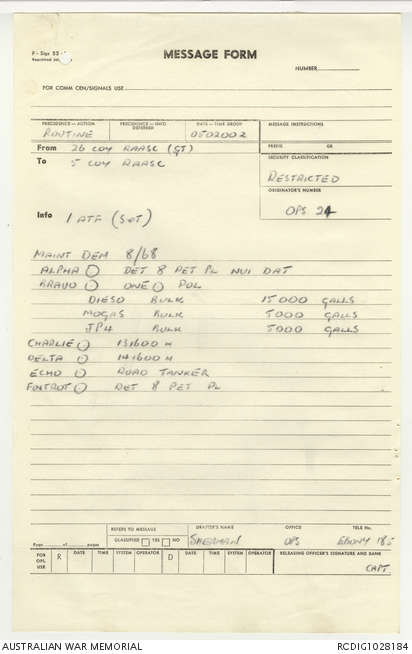 MESSAGE FORM
NUMBER
FOR COMM CEN/SIGNALS USE
PRECEDENCE—ACTION
ROUTINE
PRECEDENCE—INFO
DEFERRED
DATE—TIME GROUP
050200Z
MESSAGE INSTRUCTIONS
From 26 COY RAASC (GT)
PREFIX GR
To 5 COY RAASC
SECURITY CLASSIFICATION
RESTRICTED
ORIGINATOR'S NUMBER
OPS 24
Info 1 ATF (S&T)
MAINT DEM 8/68
ALPHA O DET 8 PET PL NUI DAT
BRAVO O ONE O POL
DIESO BULK 15000 GALLS
MOGAS BULK 5000 GALLS
JP4 BULK 5000 GALLS
CHARLIE O 131600 H
DELTA O 141600 H
ECHO O ROAD TANKER
FOXTROT O DET 8 PET PL
Page of pages
REFERS TO MESSAGE
CLASSIFIED YES NO
DRAFTER'S NAME
SHERMAN
OFFICE
OPS
TELE No.
EBONY
FOR OPS. USE
R DATE TIME SYSTEM OPERATOR D DATE TIME SYSTEM OPERATOR
RELEASING OFFICER'S SIGNATURE AND RANK
CAPT
AUSTRALIAN WAR MEMORIAL
RCDIG1028184